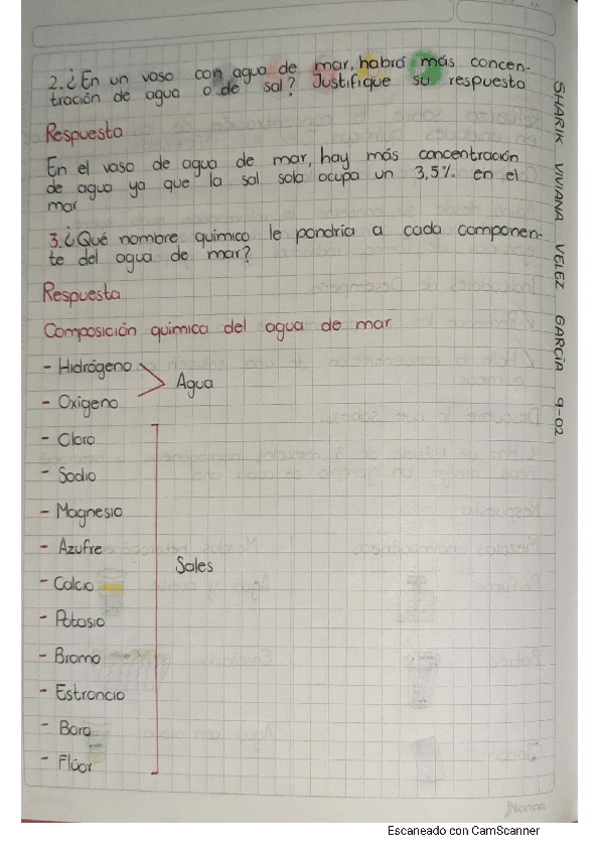 2. ¿En un vaso con agua de mar, habrá más concen-
tración de agua o de sal? Justifique su respuesta
Respuesta
En el vaso de agua de mar, hay más concentración
de agua ya que la sal solo ocupa un 3,5% en el
mar
3. ¿Qué nombre químico le pondría a cada componen-
te del agua de mar?
Respuesta
Composición química del agua de mar
- Hidrógeno
Agua
- Oxígeno
- Cloro
- Sodio
- Magnesio
- Azufre
Sales
- Calcio
- Potasio
- Bromo
- Estroncio
- Boro
- Flúor
SHARIK VIVIANA VELEZ GARCÍA 9-02
Norma
Escaneado con CamScanner